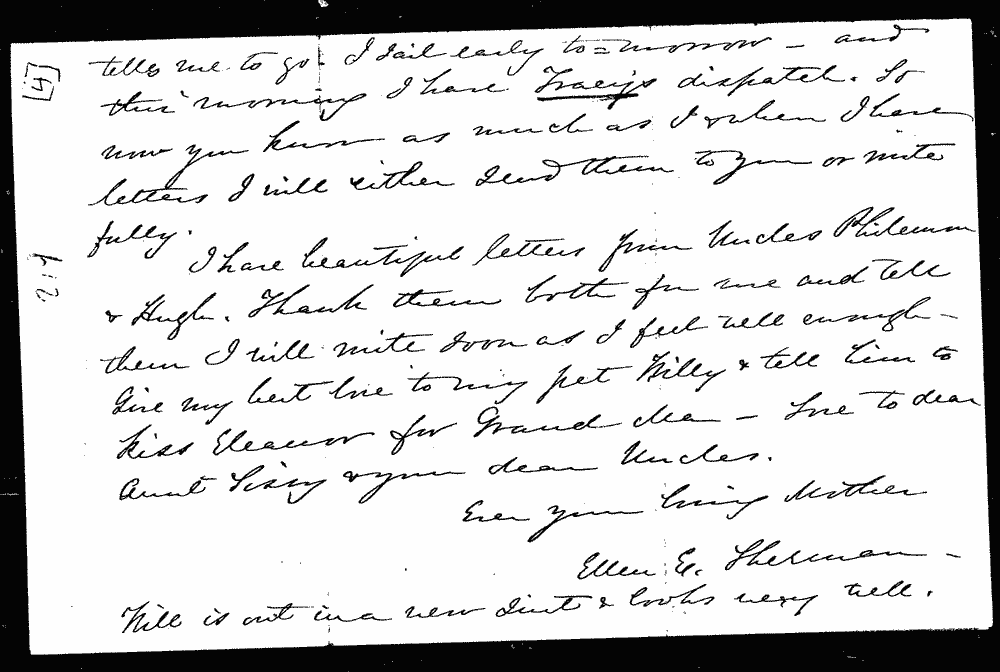 [4]
tells me to go. I sail early to=morrow - and
this morning I have Tracy's dispatch. So
now you know as much as I & when I have
letters I will either send them to you or write
fully.
I have beautiful letters from Uncles Philemon
& Hugh. Thank them both for me and tell
them I will write soon as I feel well enough -
Give my best love to my pet Willy & tell him to
kiss Eleanor for Grand Ma - Love to dear
Aunt Sissy & your dear Uncles.
Ever your loving Mother
Ellen E. Sherman -
Will is out in a new suit & looks very well.